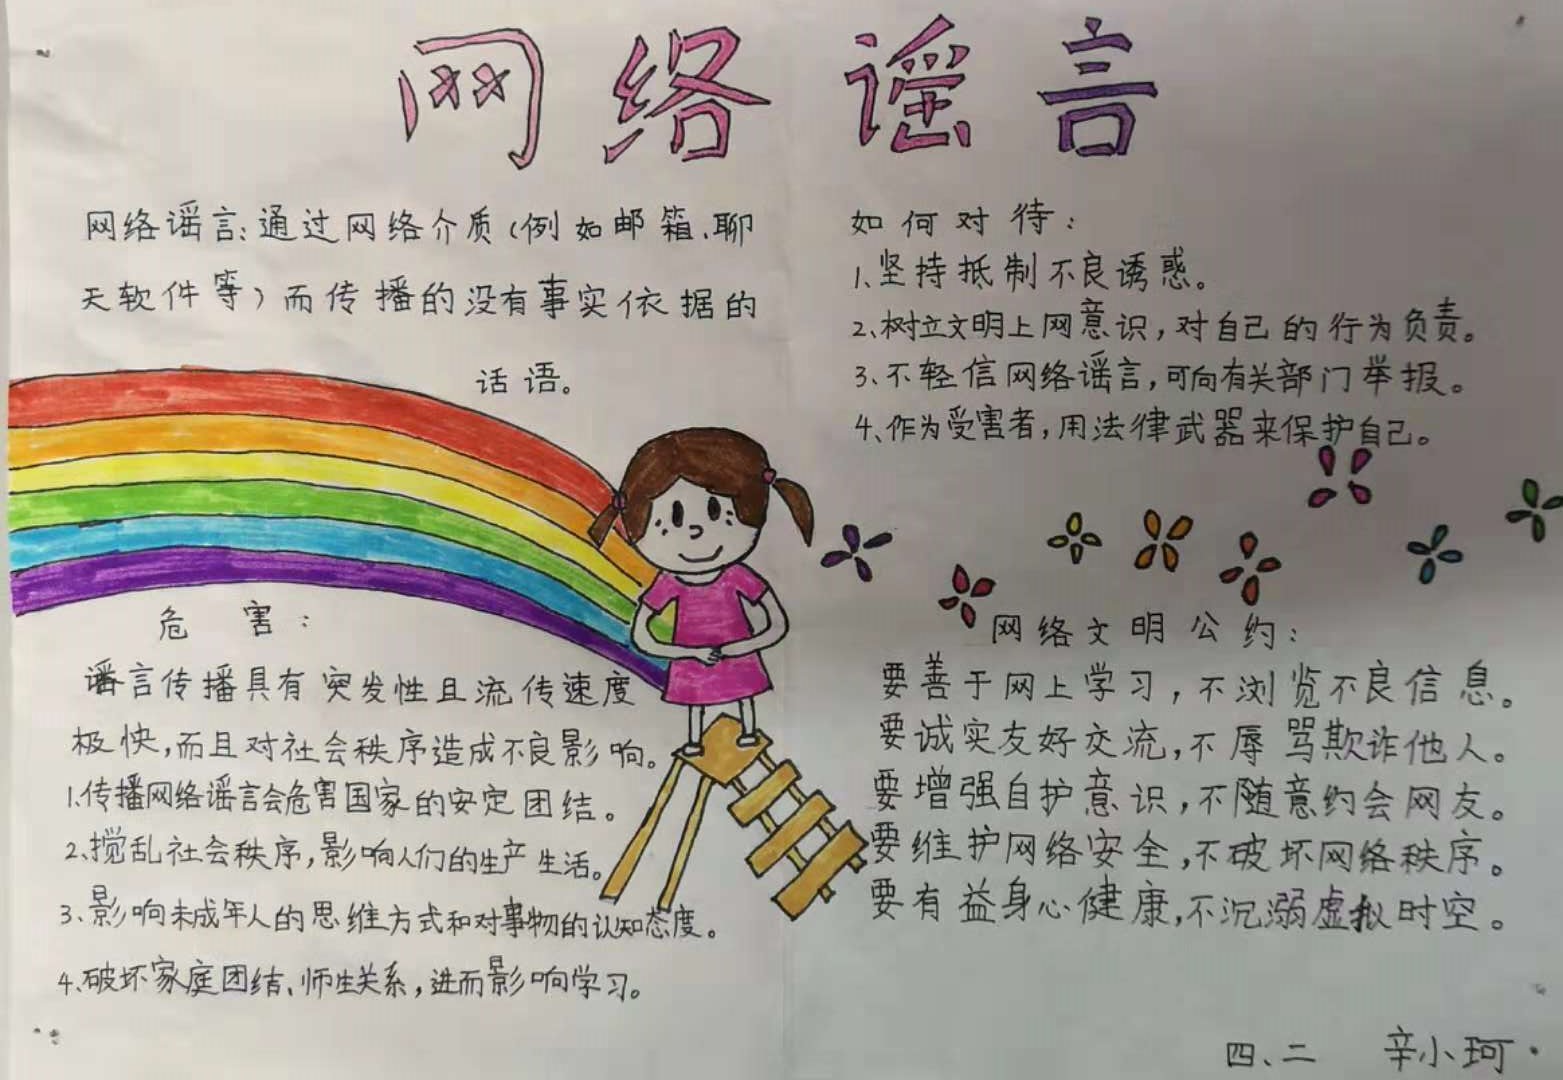 网络谣言
网络谣言:通过网络介质(例如邮箱、聊
天软件等)而传播的没有事实依据的
话语。
危害:
谣言传播具有突发性且流传速度
极快,而且对社会秩序造成不良影响。
1、传播网络谣言会危害国家的安定团结。
2、搅乱社会秩序,影响人们的生产生活。
3、影响未成年人的思维方式和对事物的认知态度。
4、破坏家庭团结、师生关系,进而影响学习。
如何对待:
1、坚持抵制不良诱惑。
2、树立文明上网意识,对自己的行为负责。
3、不轻信网络谣言,可向有关部门举报。
4、作为受害者,用法律武器来保护自己。
网络文明公约:
要善于网上学习,不浏览不良信息。
要诚实友好交流,不辱骂欺诈他人。
要增强自护意识,不随意约会网友。
要维护网络安全,不破坏网络秩序。
要有益身心健康,不沉溺虚拟时空。
四、二 辛小珂